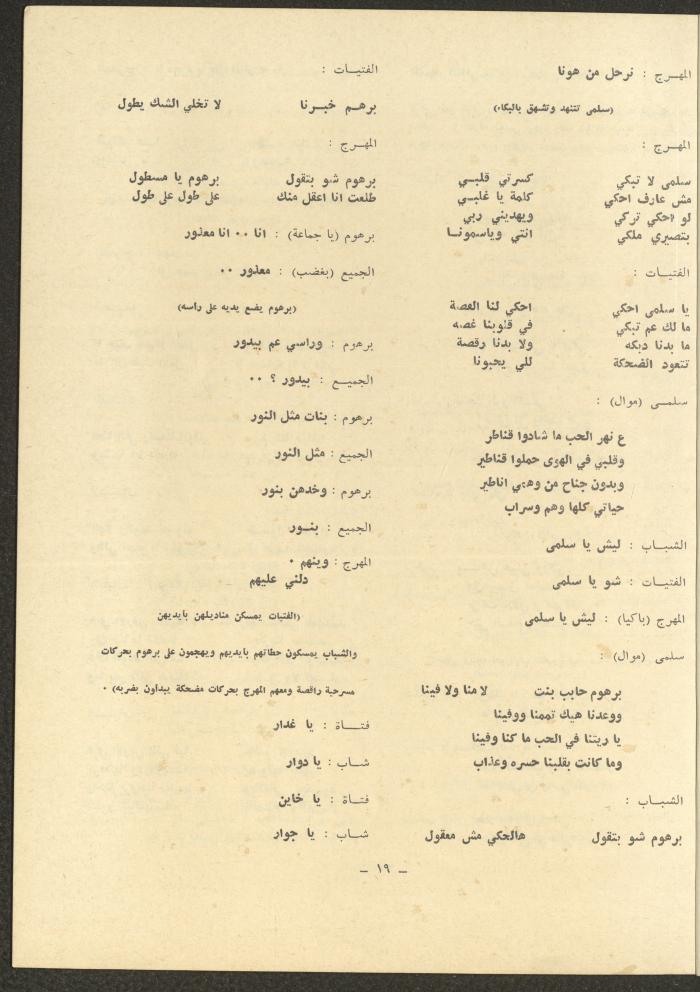 المهـرج : نرحل من هونا
(سلمى تتنهد وتشهق بالبكاء)
المهـرج :
سلمى لا تبكي كسرتي قلبـي
مش عارف احكي كلمة يا غلبـي
لو احكي تركي ويهديني ربي
بتصيري ملكي انتي وياسمونـا
الفتيـات :
يا سلمى احكي احكي لنا القصة
ما لك عم تبكي في قلوبنا غصه
ما بدنا دبكه ولا بدنا رقصة
تتعود الضحكة للي يحبونا
سلمـى (موال) :
ع نهر الحب ما شادوا قناطر
وقلبي في الهوى حملوا قناطير
وبدون جناح من وهمي اناطير
حياتي كلها وهم وسراب
الشبـاب : ليش يا سلمى
الفتيـات : شو يا سلمى
المهرج (باكيا) : ليش يا سلمى
سلمى (موال) :
برهوم حابب بنت لا منا ولا فينا
ووعدنا هيك تممنا ووفينا
يا ريتنا في الحب ما كنا وفينا
وما كانت بقلبنا حسره وعذاب
الشبـاب :
برهوم شو بتقول هالحكي مش معقول
الفتيـات :
برهـم خبـرنا لا تخلي الشك يطول
المهـرج :
برهوم شو بتقول برهوم يا مسطول
طلعت انا اعقل منك على طول على طول
برهوم (يا جماعة) : انا ٠٠ انا معذور
الجميع (بغضب) : معذور ٠٠
(برهوم يضع يديه على راسه)
برهوم : وراسي عم بيدور
الجميـع : بيدور ؟ ٠٠
برهوم : بنات مثل النور
الجميع : مثل النور
برهوم : وخدهن بنور
الجميع : بنـور
المهرج : وينهم ٠
دلني عليهم
(الفتيات يمسكن مناديلهن بايديهن
والشباب يمسكون حطاتهم بايديهم ويهجمون على برهوم بحركات
مسرحية راقصة ومعهم المهرج بحركات مضحكة يبداون بضربه) ٠
فتـاة : يا غدار
شـاب : يا دوار
فتـاة : يا خاين
شـاب : يا جوار
– ١٩ –